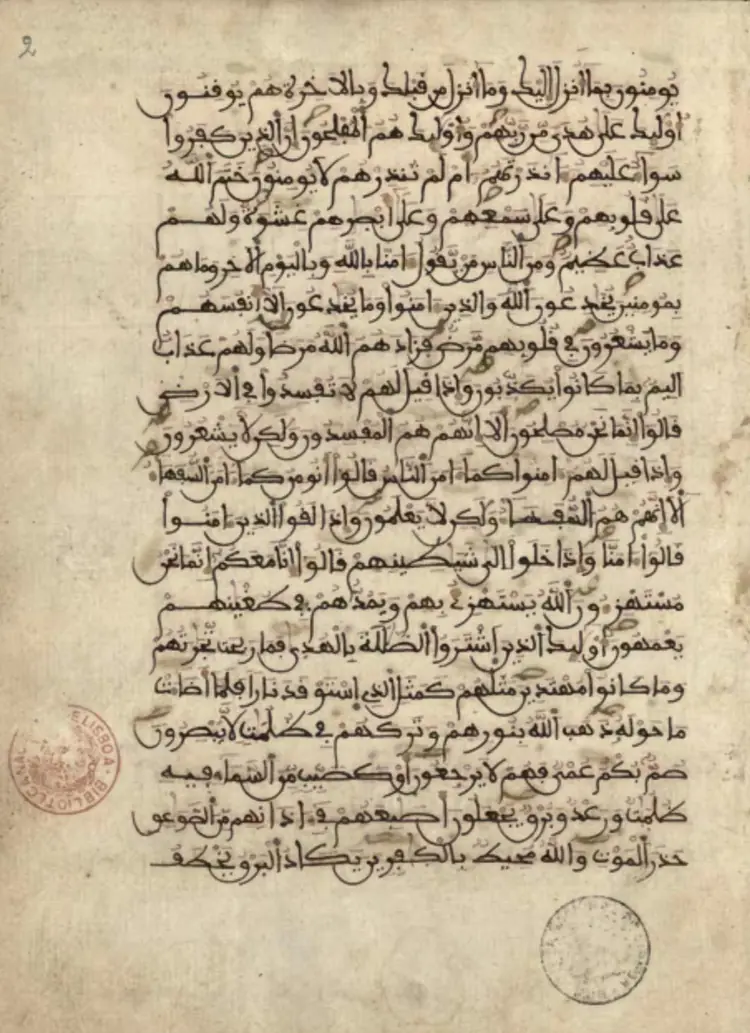 2
يومنون بما انزل اليك وما انزل من قبلك وبالاخرة هم يوقنون
اوليك على هدى من ربهم واوليك هم المفلحون ان الذين كفروا
سوا عليهم انذرتهم ام لم تنذرهم لا يومنون ختم الله
على قلوبهم وعلى سمعهم وعلى ابصرهم غشوة ولهم
عذاب عظيم ومن الناس من يقول امنا بالله وباليوم الاخر وما هم
بمومنين يخدعون الله والذين امنوا وما يخدعون الا انفسهم
وما يشعرون في قلوبهم مرض فزادهم الله مرضا ولهم عذاب
اليم بما كانوا يكذبون واذا قيل لهم لا تفسدوا في الارض
قالوا انما نحن مصلحون الا انهم هم المفسدون ولكن لا يشعرون
واذا قيل لهم امنوا كما امن الناس قالوا انومن كما امن السفها
الا انهم هم السفها ولكن لا يعلمون واذا لقوا الذين امنوا
قالوا امنا واذا خلوا الى شيطينهم قالوا انا معكم انما نحن
مستهزون الله يستهزئ بهم ويمدهم في طغينهم
يعمهون اوليك الذين اشتروا الضللة بالهدى فما ربحت تجرتهم
وما كانوا مهتدين مثلهم كمثل الذي استوقد نارا فلما اضات
ما حوله ذهب الله بنورهم وتركهم في ظلمت لا يبصرون
صم بكم عمي فهم لا يرجعون او كصيب من السماء فيه
ظلمت ورعد وبرق يجعلون اصبعهم في اذانهم من الصوعق
حذر الموت والله محيط بالكفرين يكاد البرق يخطف
LISBOA · BIBLIOTECA